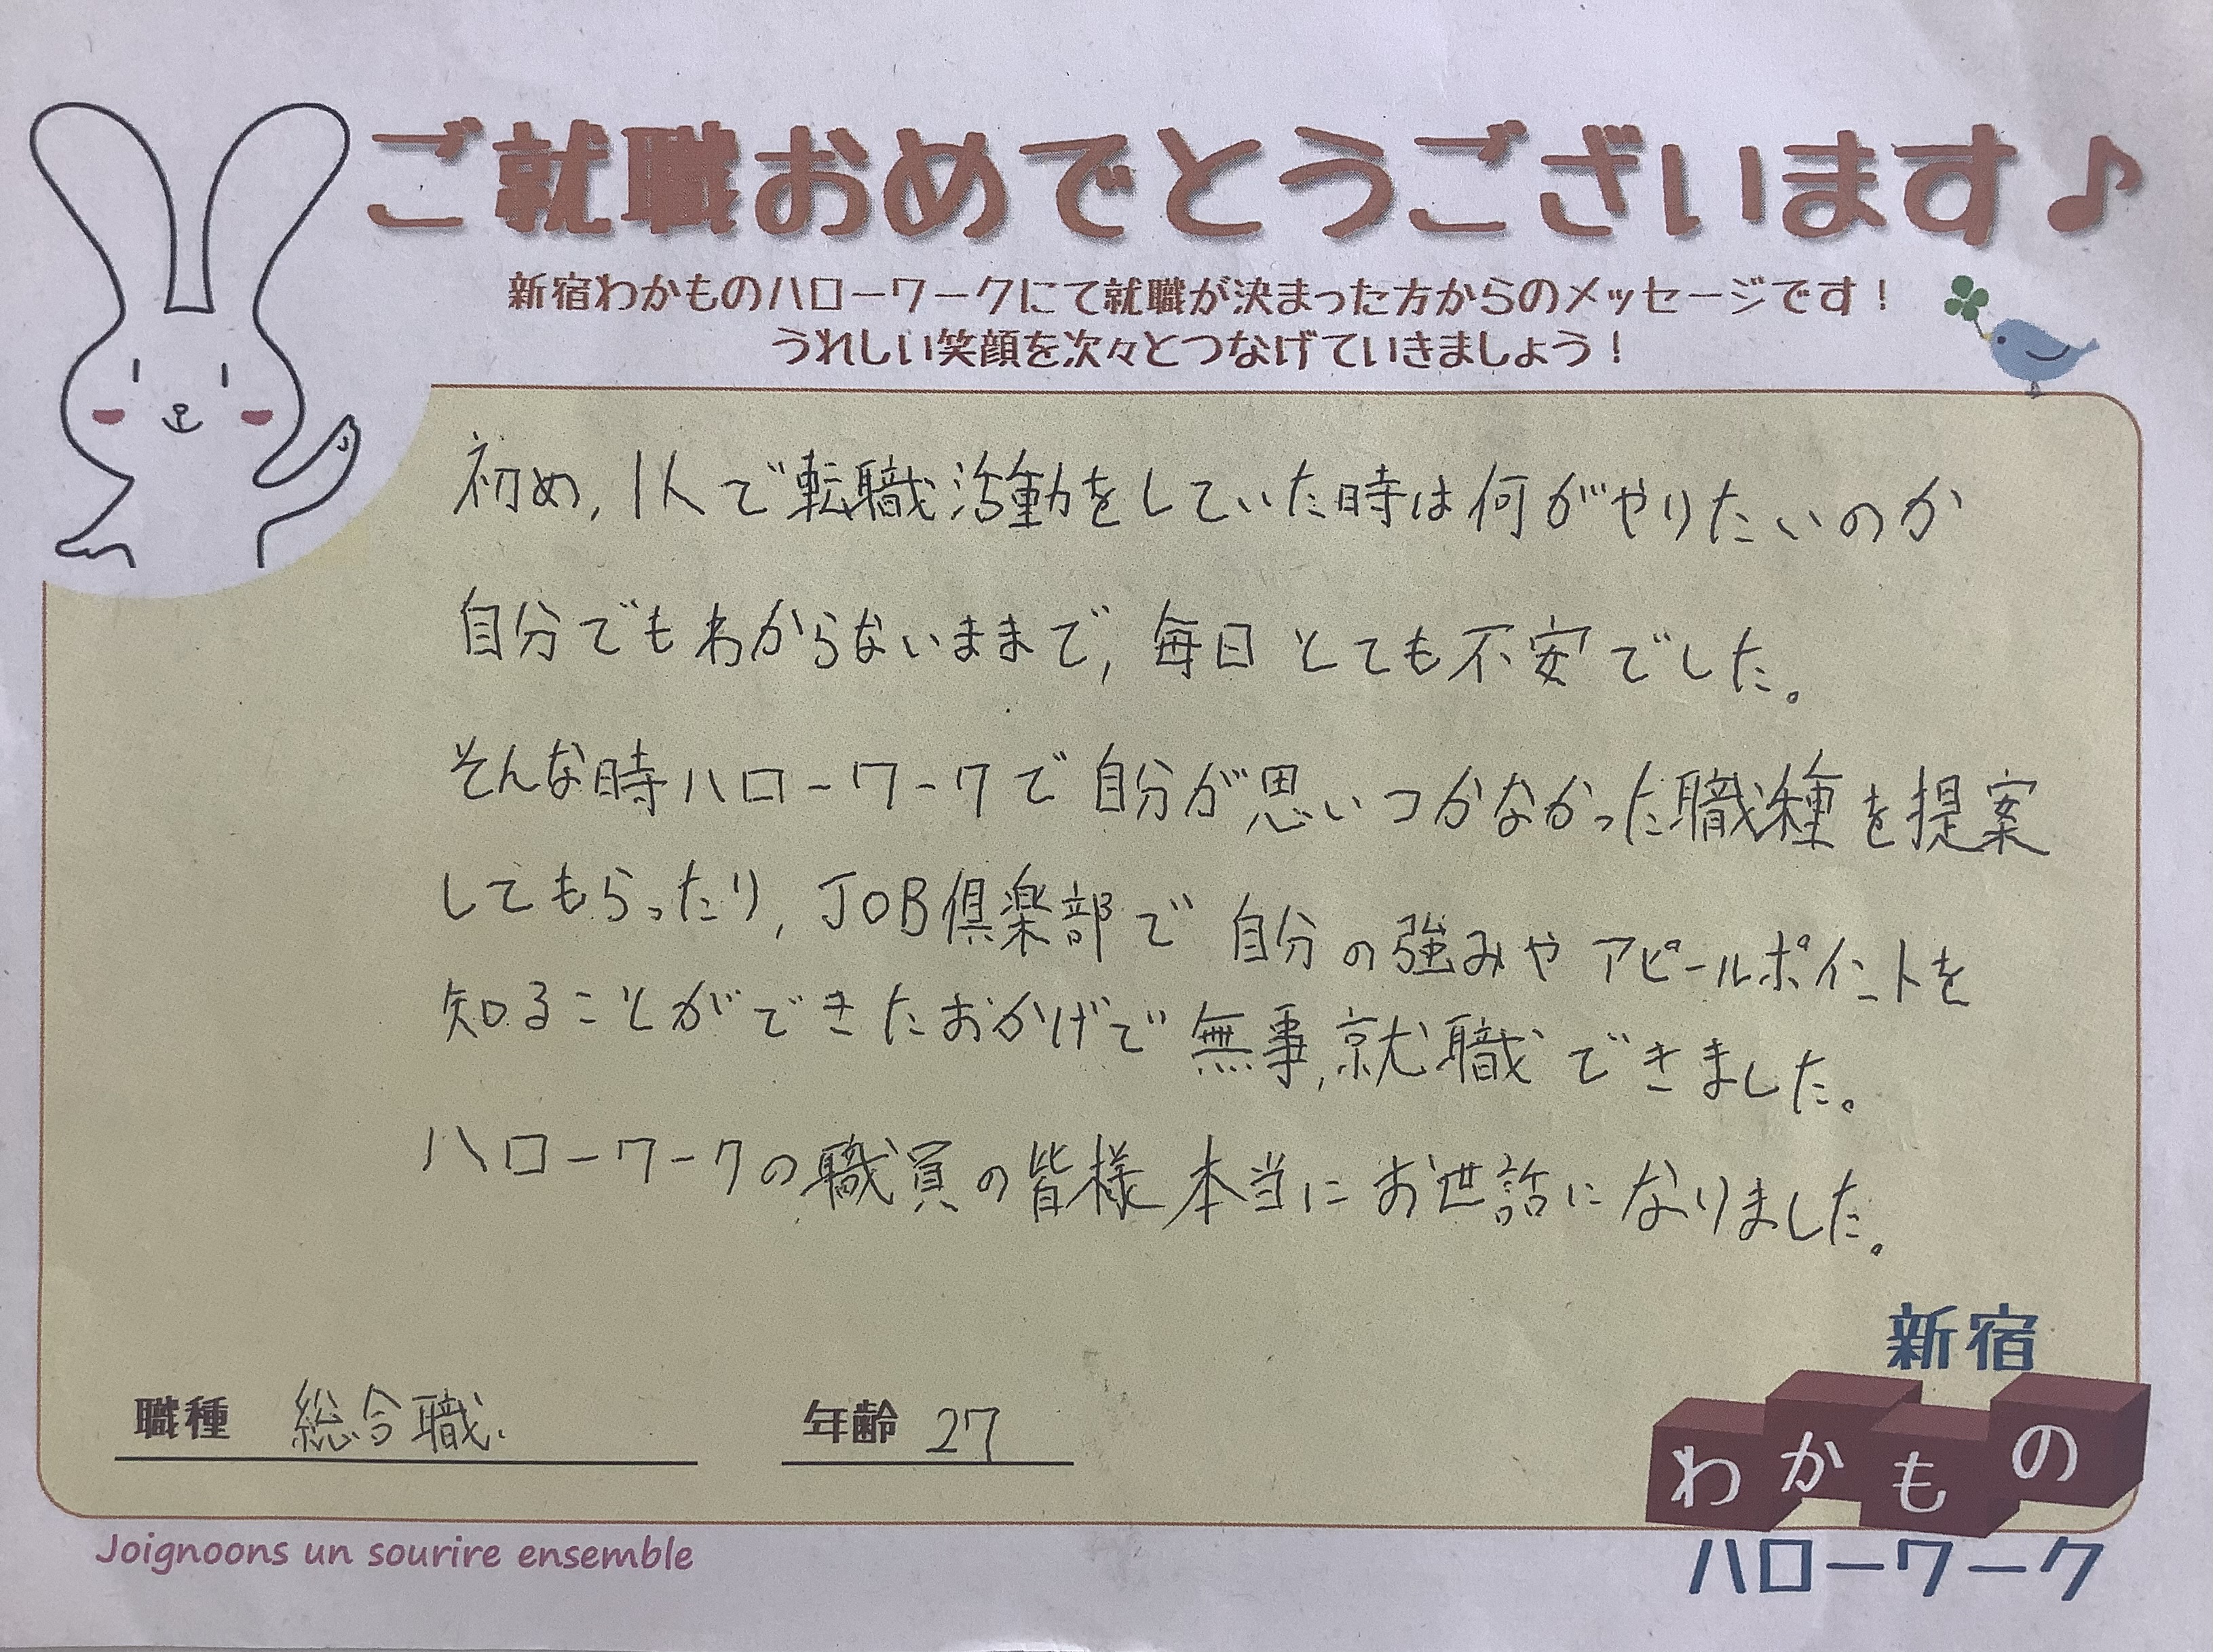 ご就職おめでとうございます♪
新宿わかものハローワークにて就職が決まった方からのメッセージです！
うれしい笑顔を次々とつなげていきましょう！
初め,1人で転職活動をしていた時は何がやりたいのか
自分でもわからないままで,毎日とても不安でした。
そんな時ハローワークで自分が思いつかなかった職種を提案
してもらったり,JOB倶楽部で自分の強みやアピールポイントを
知ることができたおかげで無事,就職できました。
ハローワークの職員の皆様本当にお世話になりました。
職種 総合職.
年齢 27
新宿
わかもの
ハローワーク
Joignoons un sourire ensemble